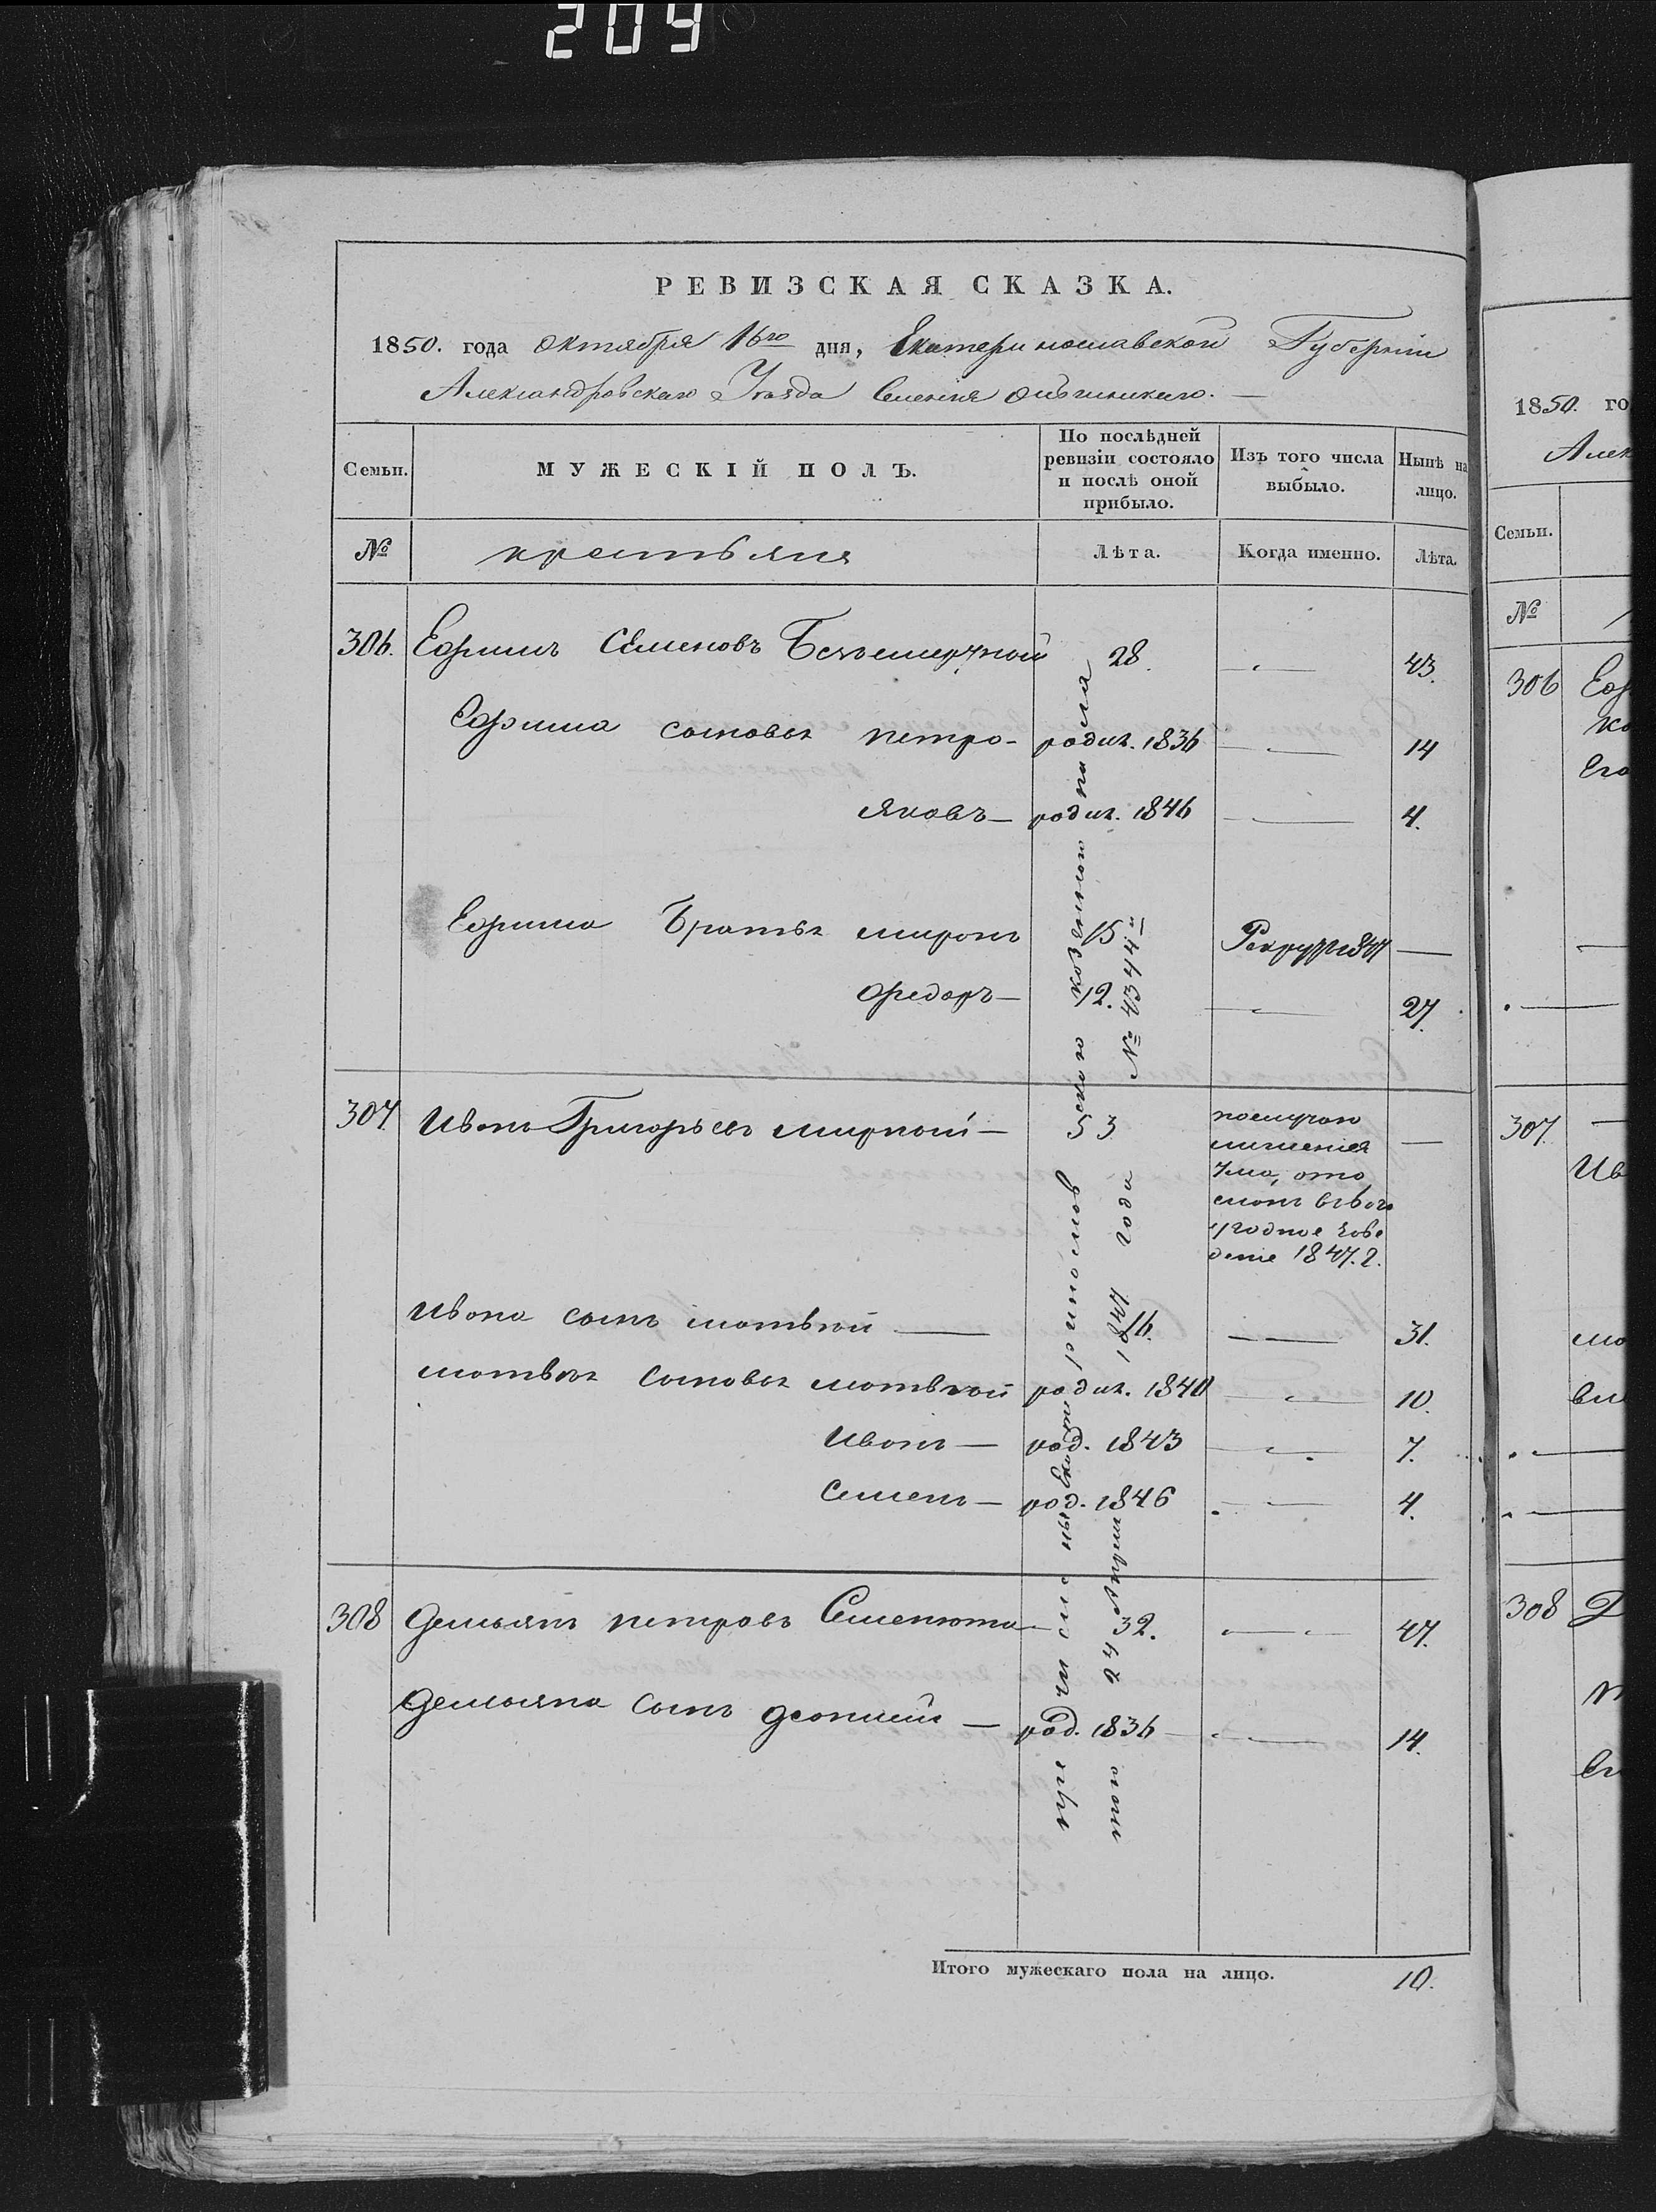 209
РЕВИЗСКАЯ СКАЗКА.
1850. года октября 16го дня, Екатеринославской Губерніи
Александровскаго Уезда Селенія
Семьи.
МУЖЕСКІЙ ПОЛЪ.
По послѣдней ревизіи состояло и послѣ оной прибыло.
Изъ того числа выбыло.
Нынѣ на лицо.
№
крестьяня
Лѣта.
Когда именно.
Лѣта.
306. Ефримъ Семеновъ 28. 43.
Ефрима сыновья петро - родил. 1836 14
Яковъ - родил. 1846 4.
Ефрима Братья миронъ 15 Рекрут 1847 —
Федоръ - 12. 27.
307 Иванъ Григорьевъ мирный - 53 —
1847. г.
Ивана сынъ матвѣй — 16. 31.
матвѣя сыновья матвѣй родил. 1840 10.
Иванъ — род. 1843 7.
Семенъ — род. 1846 4.
308 Демьянъ петровъ Семенюта 32. 47.
Демьяна сынъ — род. 1836 14.
казенною палатою
24 Апреля 1847 года № 4344
Итого мужескаго пола на лицо. 10.
1850. го
Алек
Семьи.
№
306 Еф
307
Ив
308 Д